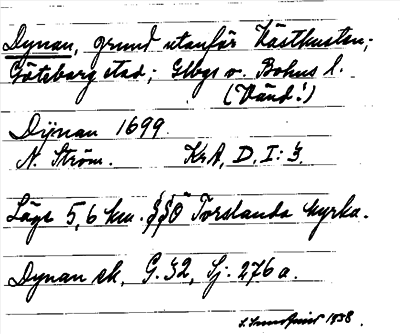 Dynan, grund utanför Västkusten;
Göteborg stad; Gbgs o. Bohus l.
(Vänd!)
Dÿnan 1699.
N. Ström. KrA, D, I: 3.
Läge 5,6 km. SSO Torslanda kyrka.
Dynan ek, G. 32, Sj. 276 a.
1938.